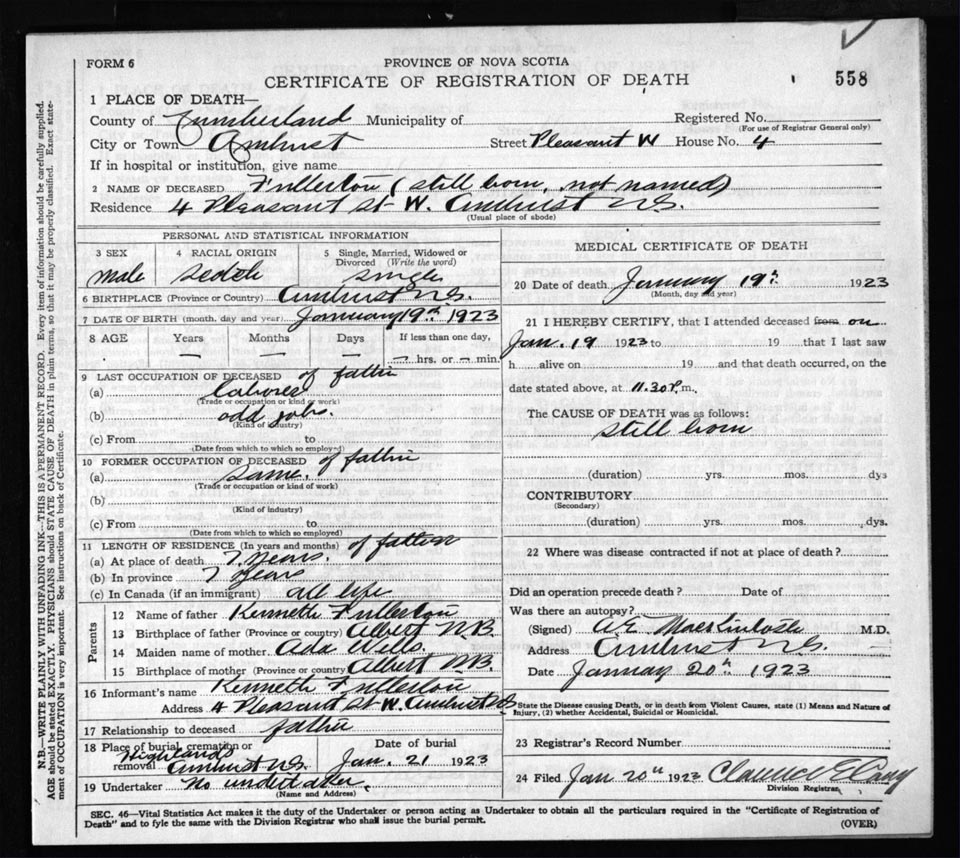 FORM 6
PROVINCE OF NOVA SCOTIA
CERTIFICATE OF REGISTRATION OF DEATH
558
1 PLACE OF DEATH—
County of Cumberland Municipality of
Registered No.
(For use of Registrar General only)
City or Town Amherst Street Pleasant W House No. 4
If in hospital or institution, give name
2 NAME OF DECEASED Fullerton (still born, not named)
Residence 4 Pleasant St W. Amherst N.S.
(Usual place of abode)
PERSONAL AND STATISTICAL INFORMATION
3 SEX 4 RACIAL ORIGIN 5 Single, Married, Widowed or Divorced (Write the word)
male single
6 BIRTHPLACE (Province or Country) Amherst N.S.
7 DATE OF BIRTH (month, day and year) January 19th 1923
8 AGE Years Months Days If less than one day,
— — — — hrs. or — min.
9 LAST OCCUPATION OF DECEASED of father
(a) laborer
(Trade or occupation or kind of work)
(b) odd jobs.
(Kind of industry)
(c) From to
(Date from which to which so employed)
10 FORMER OCCUPATION OF DECEASED of father
(a) Same.
(Trade or occupation or kind of work)
(b)
(Kind of industry)
(c) From to
(Date from which to which so employed)
11 LENGTH OF RESIDENCE (In years and months) of father
(a) At place of death 7 years.
(b) In province 7 years
(c) In Canada (if an immigrant) all life
Parents
12 Name of father Kenneth Fullerton
13 Birthplace of father (Province or country) Albert N.B.
14 Maiden name of mother Ada Wells.
15 Birthplace of mother (Province or country) Albert N.B.
16 Informant's name Kenneth Fullerton
Address 4 Pleasant St W. Amherst NS
17 Relationship to deceased father
18 Place of burial, cremation or removal Highlands Amherst N.S.
Date of burial
Jan. 21 1923
19 Undertaker No undertaker
(Name and Address)
MEDICAL CERTIFICATE OF DEATH
20 Date of death January 19th 1923
(Month, day and year)
21 I HEREBY CERTIFY, that I attended deceased from on
Jan. 19 1923 to 19 that I last saw
h alive on 19 and that death occurred, on the
date stated above, at 11.30 P.m.
The CAUSE OF DEATH was as follows:
still born
(duration) yrs. mos. dys
CONTRIBUTORY
(Secondary)
(duration) yrs. mos. dys.
22 Where was disease contracted if not at place of death?
Did an operation precede death? Date of
Was there an autopsy?
(Signed) MacKintosh M.D.
Address Amherst N.S.
Date January 20th 1923
State the Disease causing Death, or in death from Violent Causes, state (1) Means and Nature of
Injury, (2) whether Accidental, Suicidal or Homicidal.
23 Registrar's Record Number
24 Filed Jan 20th 1923
Division Registrar
SEC. 46—Vital Statistics Act makes it the duty of the Undertaker or person acting as Undertaker to obtain all the particulars required in the "Certificate of Registration of
Death" and to fyle the same with the Division Registrar who shall issue the burial permit.
(OVER)
N.B.—WRITE PLAINLY WITH UNFADING INK—THIS IS A PERMANENT RECORD. Every item of information should be carefully supplied.
AGE should be stated EXACTLY. PHYSICIANS should STATE CAUSE OF DEATH in plain terms, so that it may be properly classified. Exact state-
ment of OCCUPATION is very important. See instructions on back of Certificate.